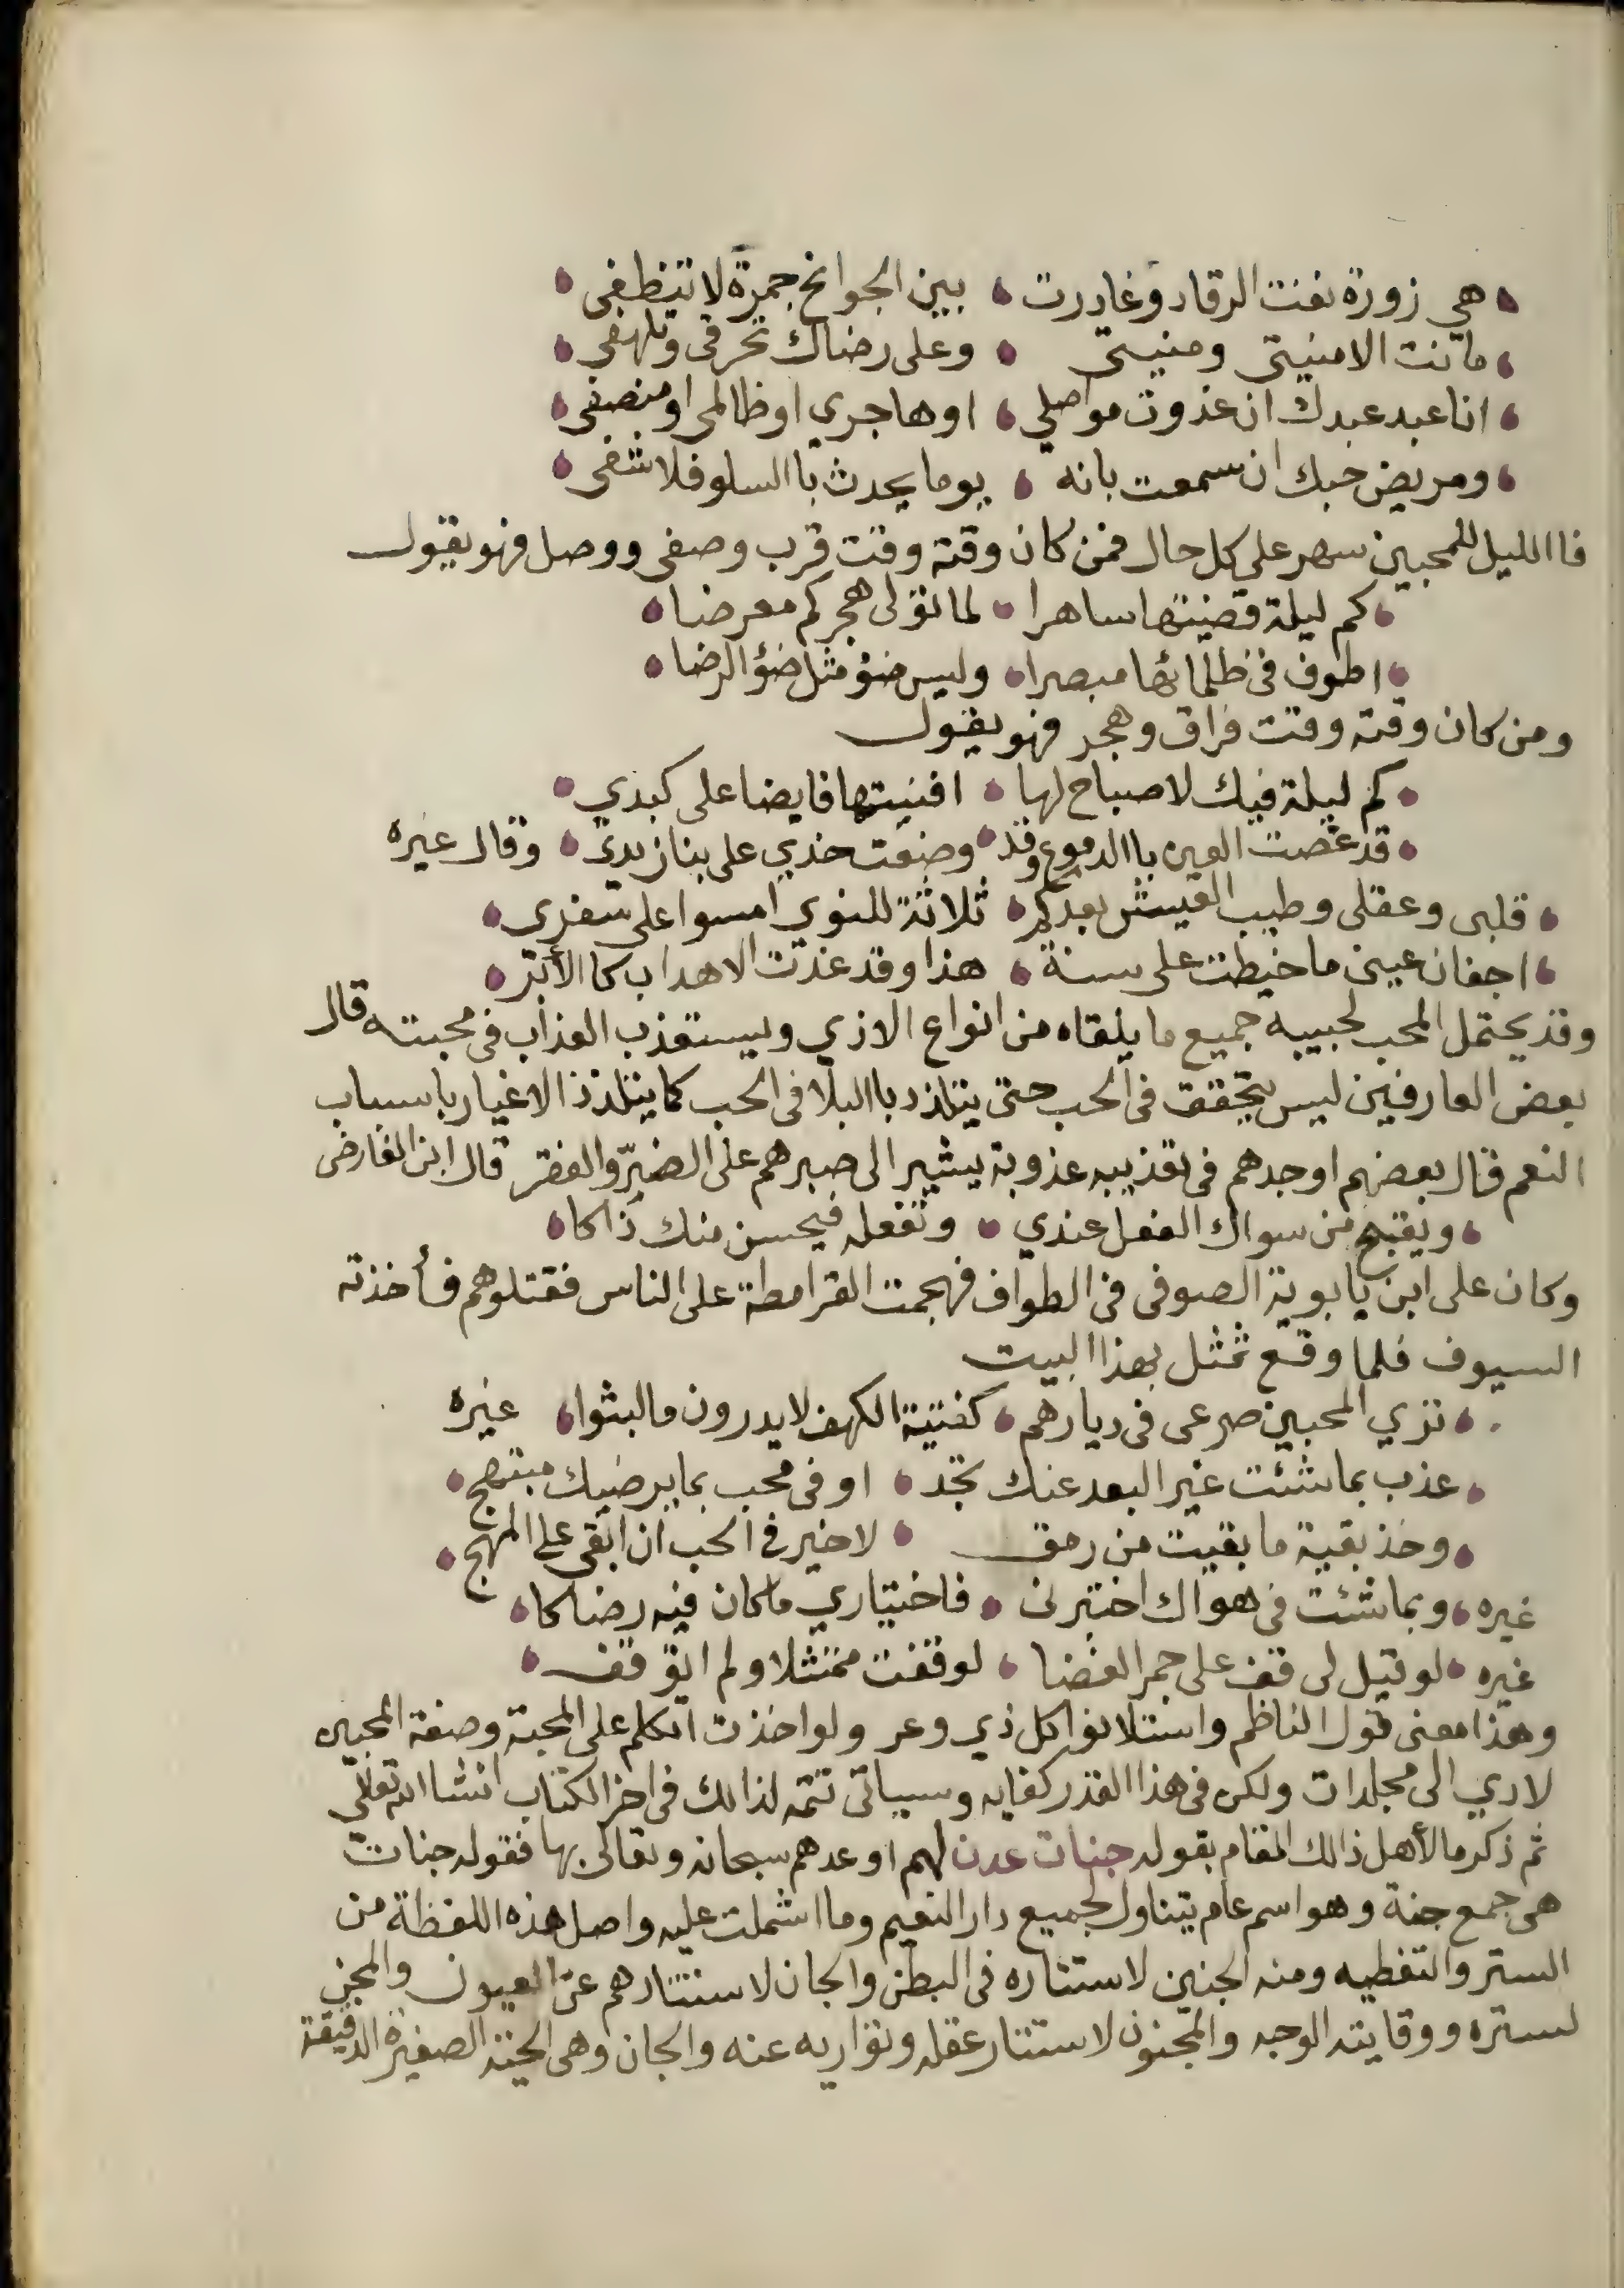 هي زورة نفت الرقاد وغادرت • بين الجوانح جمرة لا تنطفي •
ما نت الا منيتي ومنيتي • وعلى رضاك تحرقي وتلهفي •
انا عبد عبدك ان غدوت مواصلي • او هاجري او ظالمي او منصفي •
ومريض حبك ان سمعت بانه • يوما يحدث باالسلو فلا شفي •
فاالليل للمحبين سهر على كل حال فمن كان وقته وقت قرب وصفى ووصل فهو يقول
كم ليلة قضيتها ساهرا • لما تولى هجركم معرضا •
اطوف في ظلمائها مبصرا • وليس ضؤ مثل ضؤ الرضا •
ومن كان وقته وقت فراق وهجر فهو يقول
كم ليلة فيك لا صباح لها • افنيتها قابضا على كبدي •
قد غصت العين باالدموع وقد • وضعت خدي على بنان يدي • وقال غيره
قلبى وعقلى وطيب العيش بعدكم • ثلاثة للنوي امسوا على سفري •
اجفان عينى ما خيطت على سنة • هذا وقد غدت الاهداب كا الأبر •
وقد يحتمل المحب لحبيبه جميع ما يلقاه من انواع الاذي ويستعذب العذاب في محبته قال
بعض العارفين ليس يتحقق في الحب حتى يتلذذ باالبلا في الحب كما يتلذذ الاغيار باسباب
النعم قال بعضهم اوجدهم في تعذيبه عذوبة يشير الى صبرهم على الضرّ والفقر قال ابن الفارض
ويقبح من سواك الفعل عندي • وتفعله فيحسن منك ذاكا •
وكان على ابن يابوية الصوفى في الطواف فهجمت القرامطة على الناس فقتلوهم فأخذته
السيوف فلما وقع تمثل بهذا البيت
تري المحبين صرعى في ديارهم • كفتية الكهف لا يدرون ما لبثوا • غيره
عذب بما شئت غير البعد عنك تجد • اوفى محب بما يرضيك مبتهج •
وخذ بقية ما بقيت من رمق • لا خير في الحب ان ابقى على المهج •
غيره • وبما شئت في هواك اختبرنى • فاختياري ما كان فيه رضاكا •
غيره • لو قيل لى قف على جمر الغضا • لوقفت ممتثلا ولم اتوقف •
وهذا معنى قول الناظم واستلانوا كل ذي وعر ولو اخذت اتكلم على المحبة وصفة المحبين
لادي الى مجلدات ولكن في هذا القدر كفايه وسياتى تتمه لذالك في اخر الكتاب انشا الله تعالى
ثم ذكر ما لأهل ذالك المقام بقوله جنات عدن لهم اوعدهم سبحانه وتعالى بها فقوله جنات
هى جمع جنة وهو اسم عام يتناول لجميع دار النعيم وما اشملت عليه واصل هذه اللفظة من
الستر والتغطيه ومنه الجنين لاستتاره في البطن والجان لاستتارهم عن العيون والمجن
لستره ووقايته الوجه والمجنون لاستتار عقله وتواريه عنه والجان وهى الحية الصغيرة الدقيقة